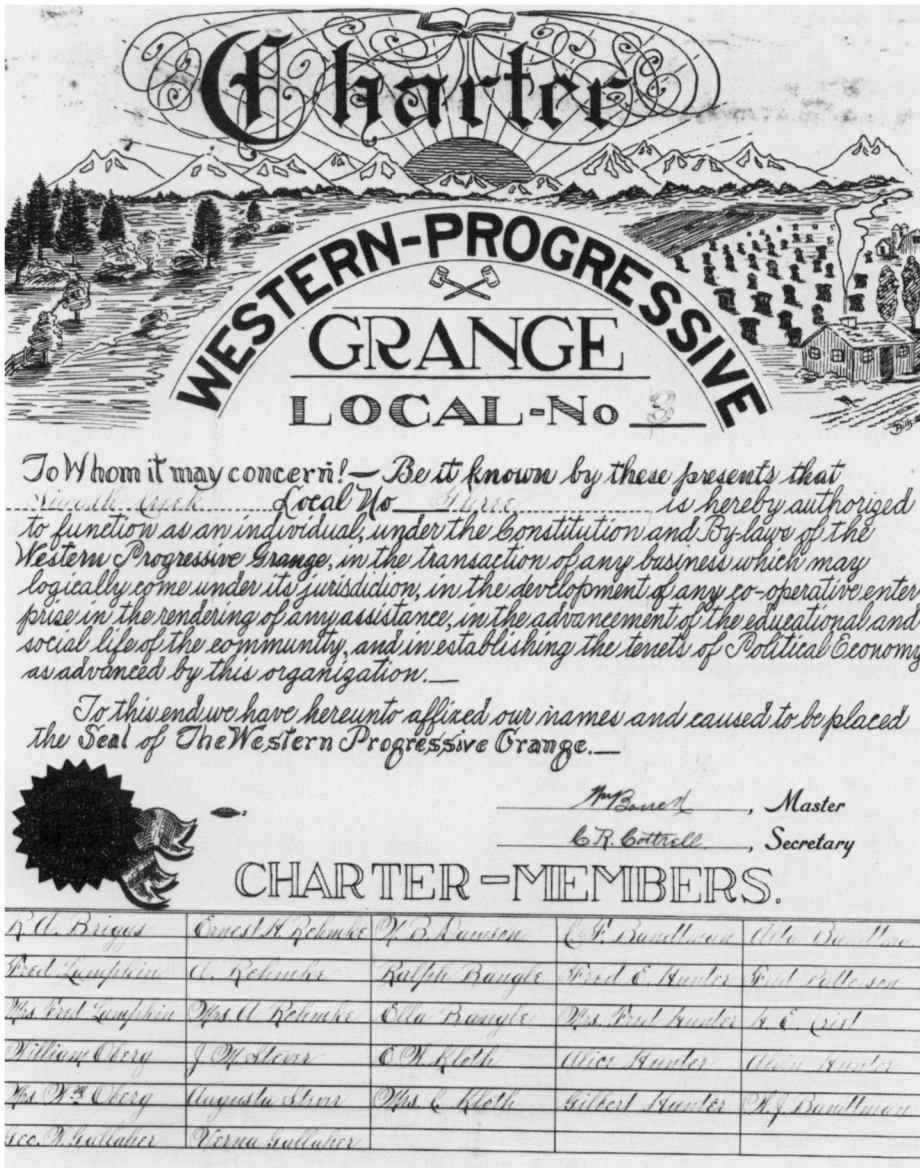 Charter
WESTERN-PROGRESSIVE
GRANGE
LOCAL-No 3
To Whom it may concern! — Be it known by these presents that
Creek Local No Three is hereby authorized
to function as an individual, under the Constitution and By-laws of the
Western Progressive Grange, in the transaction of any business which may
logically come under its jurisdidion, in the development of any co-operative enter
prise in the rendering of any assistance, in the advancement of the educational and
social life of the community, and in establishing the tenets of Political Economy
as advanced by this organization.—
To this end we have hereunto affixed our names and caused to be placed
the Seal of The Western Progressive Grange.—
, Master
C.R. Cottrell, Secretary
CHARTER-MEMBERS.
R.A. Briggs Ernest H. Rehmke Dawson C.F. Bundtman Bundtman
Fred Lampkin A. Rehmke Ralph Bangle Fred E. Hunter Fred Patterson
Mrs. Fred Lampkin Mrs. A. Rehmke Ella Bangle Mrs. Fred Hunter Crist
William Oberg J.M. Stever Kloth Alice Hunter Alvin Hunter
Mrs. Wm Oberg Augusta Mrs. C. Kloth Gilbert Hunter Bundtman
Geo. Gallaher Verna Gallaher